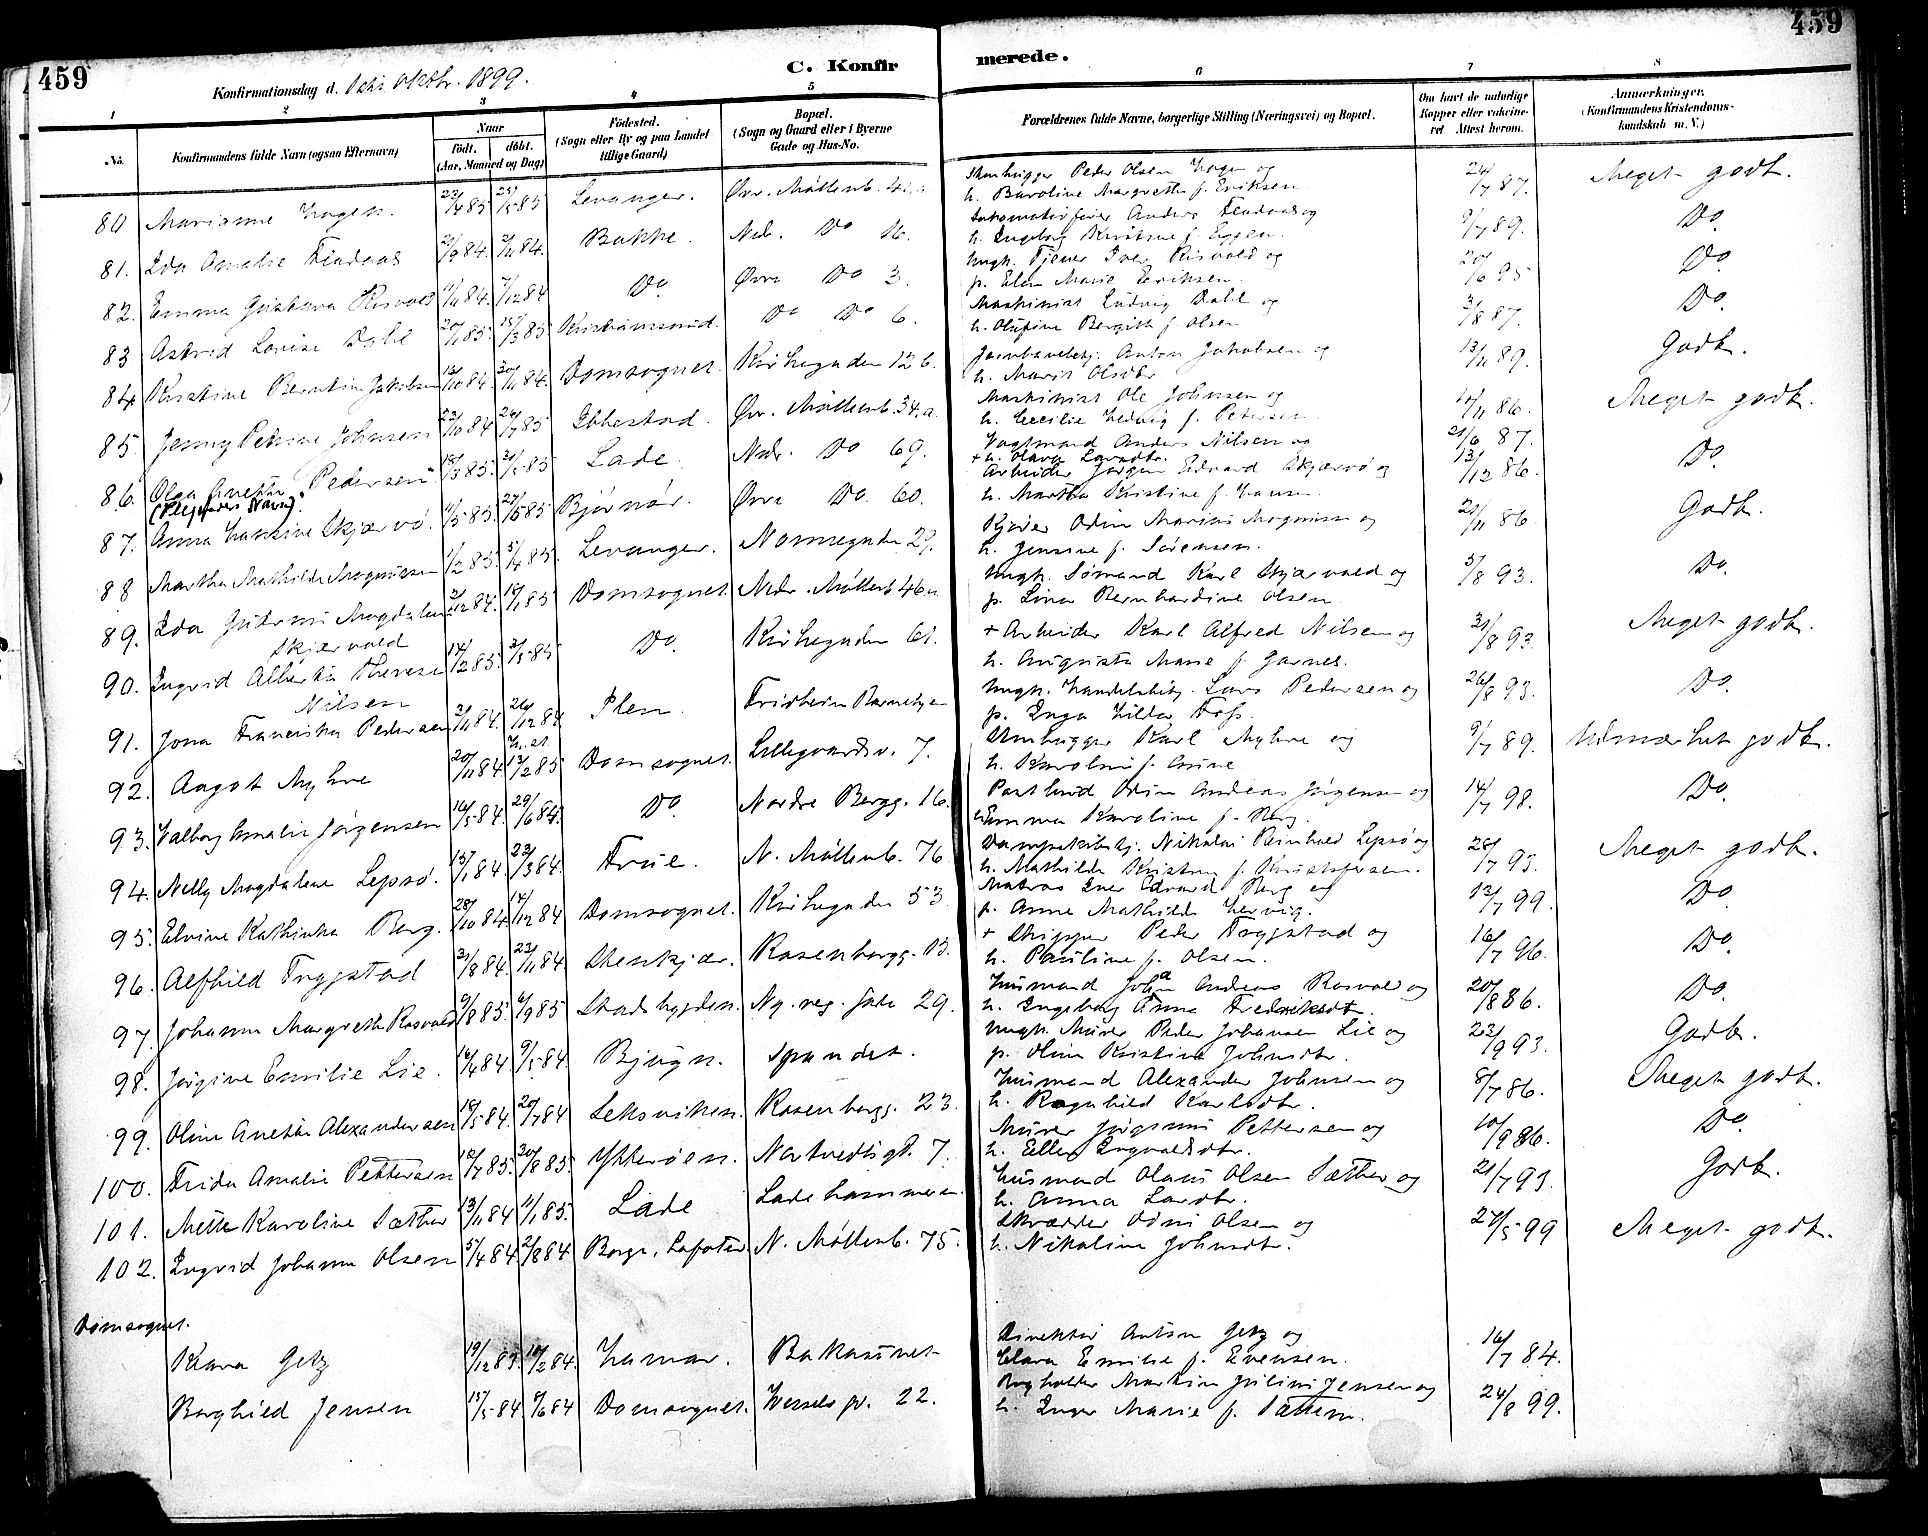 459
459
Konfirmationsdag d. 1ste Oktbr. 1899.
C. Konfirmerede.
1 2 3 4 5 6 7 8
No. Konfirmandens fulde Navn (ogsaa Efternavn) Naar født. døbt. (Aar, Maaned og Dag) Fødested. (Sogn eller By og paa Landet tillige Gaard) Bopæl. (Sogn og Gaard eller i Byerne Gade og Hus-No. Forældrenes fulde Navne, borgerlige Stilling (Næringsvei) og Bopæl. Om havt de naturlige Kopper eller vakcineret Attest herom. Anmærkninger. (Konfirmandens Kristendomskundskab m. V.)
80 Marianne Hagen. 23/4 85 25/5 85 Levanger. Øvr. Møllenb. 41 Stenhugger Peder Olsen Hagen og 24/7 87. Meget godt.
h. Baroline Margrethe f. Eriksen
81. Ida Amalie Flodaas 21/9 84. 2/11 84. Bakke. Ned. Do 16. Lokomotivfører Anders Flodaas og 9/7 89. Do
h. Ingeborg Kirstine f. Eggen.
82. Emma Gustava Risvold 11/11 84. 7/12 84 Do. Øvre Do 3. Ungk. Tjener Iver Risvold og 20/6 95 Do.
p. Elen Marie Eriksen.
83 Astrid Lovise Dahl 20/1 85. 15/3 85 Kristianssund. Do Do 6. Maskinist Ludvig Dahl og 3/8 87. Do.
h. Olufine Bergith f. Olsen
84 Kristine Berntin Jakobsen 12/10 84. 30/11 84. Domsognet. Kirkegaden 12 b. Jernbanebetj. Anton Jakobsen og 13/11 89. Godt.
h. Marit Olsdtr.
85. Jenny Petrine Johnsen 23/10 84 26/7 85 Ibbestad. Øvr. Møllenb. 34.a. Maskinist Ole Johnsen og 10/11 86. Meget godt.
h. Cecilie Hedvig f. Petersen
86. Olga Anetta Pedersen 18/3 85. 31/5 85 Lade. Nedr. Do 69. Vogtmand Anders Nilsen og 21/6 87. Do
(Plejefaders Navn). + h. Olava Larsdtr.
87. Anna Hansine Skjærvø. 11/5 85. 27/5 85 Bjørnør. Øvre Do. 60. Arbeider Jørgen Edvard Skjærvø og 13/12 86.
h. Martha Kristine f. Hansen
88 Martha Mathilde Magnussen 1/2 85. 5/4 85. Levanger. Nonnegaden 29. Kjører Odin Marius Magnussen og 21/11 86. Godt.
h. Jensine f. Sørensen.
89. Ida Gudrun Magdalene Skjærvold 2/12 84. 18/1 85 Domsognet. Nedr. Møllenb 46 a Ungk. Sømand Karl Skjærvold og 5/8 93. Do.
p. Lina Bernhardine Olsen
90. Ingrid Alberta Therese Nilsen 14/2 85. 3/5 85 Do. Kirkegaden 61. + Arbeider Karl Alfred Nilsen og 31/8 93. Meget godt.
h. Augusta Marie f. Garnes.
91. Jona Franciska Pedersen 3/11 84. 26/12 84 Plen. Fridheim Barnehjem Ungk. Handelsbetj. Lars Pedersen og 26/8 93. Do.
p. Inga Hilda Foss.
92. Aagot Myhre 20/11 84 13/2 85 Domsognet. Lillegaardsv. 7. Stenhugger Karl Myhre og 9/7 89. Udmærket godt.
h. Karoline f. Arine
93. Valborg Amalie Jørgensen 16/5 84. 29/6 84. Do. Nordre Bergg. 16. Postbud Odin Andreas Jørgensen og 14/7 98. Do.
Emma Karoline f. Berg.
94. Nelly Magdalene Lepsø. 13/1 84. 23/3 84. Frue. N. Møllenb. 76 Dampskibsbetj. Nikolai Reinhold Lepsø og 28/7 93. Meget godt.
h. Mathilde Kristine f. Kristofersen.
95. Elvine Kathinka Berg. 28/10 84. 14/12 84 Domsognet. Kirkegaden 53 Matros Iver Edvard Berg og 13/7 99. Do.
p. Anne Mathilde Hervig.
96. Alfhild Tryggstad 31/8 84. 23/11 84 Stenkjær. Rosenborgg. 13. + Skipper Peder Tryggstad og 16/7 96. Do.
h. Pauline f. Olsen.
97. Johanna Margrethe Rosvold 9/8 85. 6/9 85 Stadsbygden. Ny. reg. Gade 29. Husmand Johan Andreas Rosvold og 20/8 86. Do.
h. Ingeborg Anna Fredriksdtr.
98. Jørgine Emilie Lie. 16/4 84 9/5 84 Bjugn. Spandet. Ungk. Murer Peder Johansen Lie og 23/9 93. Godt.
p. Oline Kristine Johnsdtr.
99. Oline Anette Alexandersen 18/5 84. 20/7 84 Leksviken. Rosenborgg. 23. Husmand Alexander Johnsen og 8/7 86. Meget godt.
h. Ragnhild Karlsdtr.
100. Frida Amalie Pettersen 12/7 85. 30/8 85. Ytterøen. Nortvedtsgt. 7. Murer Jørginus Pettersen og 10/9 86. Do.
h. Ellen Ingvaldsdtr.
101. Mette Karoline Sæther 13/11 84 11/1 85. Lade Ladehammeren. Husmand Olaus Olsen Sæther og 21/7 93. Godt.
h. Anna Larsdtr.
102. Ingrid Johanna Olsen 5/4 84 2/8 84 Borge, Lofoten N. Møllenb. 75. Skrædder Odin Olsen og 27/5 99 Meget godt.
h. Nikoline Johnsdtr.
Domsognet.
Klara Getz 19/12 83. 10/2 84. Hamar. Bakasinet Direktør Anton Getz og 16/7 84.
Clara Emilie f. Evensen.
Borghild Jensen 15/5 84 8/6 84 Domsognet. Wessels gt. 22. Bogholder Martin Julius Jensen og 24/8 99.
h. Inger Marie f. Sættem.